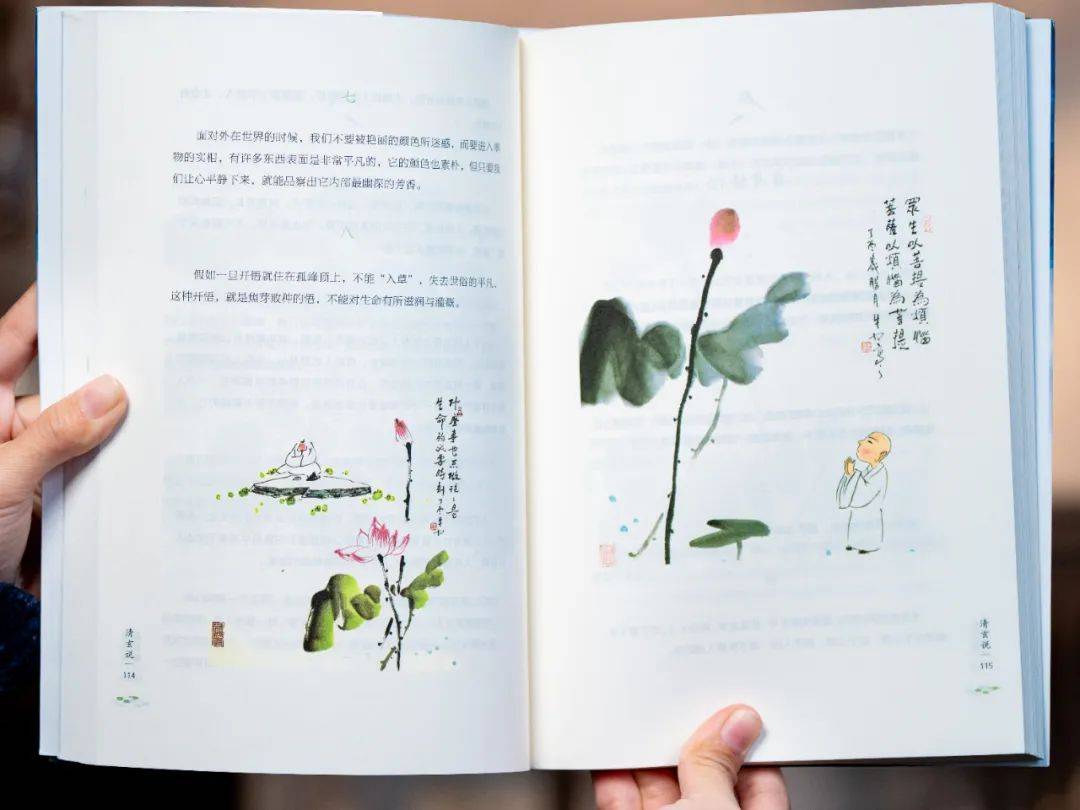 七
面对外在世界的时候，我们不要被艳丽的颜色所迷惑，而要进入事
物的实相，有许多东西表面是非常平凡的，它的颜色也素朴，但只要我
们让心平静下来，就能品察出它内部最幽深的芳香。
八
假如一旦开悟就住在孤峰顶上，不能“入草”，失去世俗的平凡，
这种开悟，就是焦芽败种的悟，不能对生命有所滋润与灌溉。
什么事也不做
生命的
清玄说
114
眾生以菩提為煩惱
菩薩以煩惱為菩提
清玄说
115